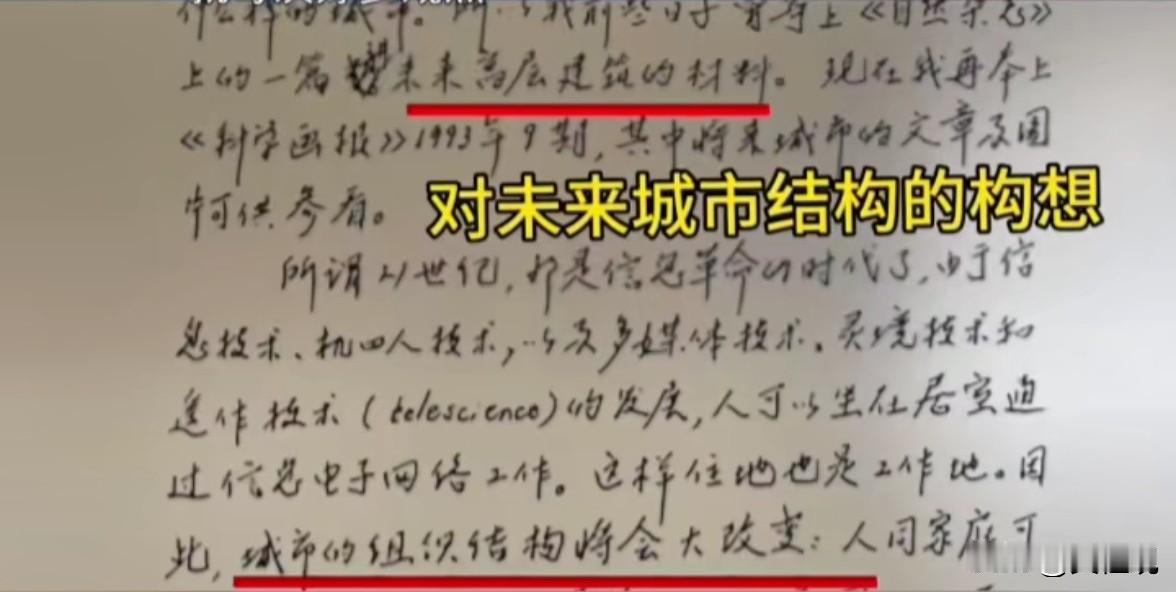 什么样的城市。所以我前些日子寄奉上《自然杂志》
上的一篇讲未来高层建筑的材料。现在我再奉上
《科学画报》1993年9期,其中将来城市的文章及图
可供参看。
对未来城市结构的构想
所谓21世纪,那是信息革命的时代了,由于信
息技术、机四人技术,以及多媒体技术、灵境技术和
遥作技术(telescience)的发展,人可以坐在居室通
过信息电子网络工作。这样住地也是工作地。因
此,城市的组织结构将会大改变:人同家庭可